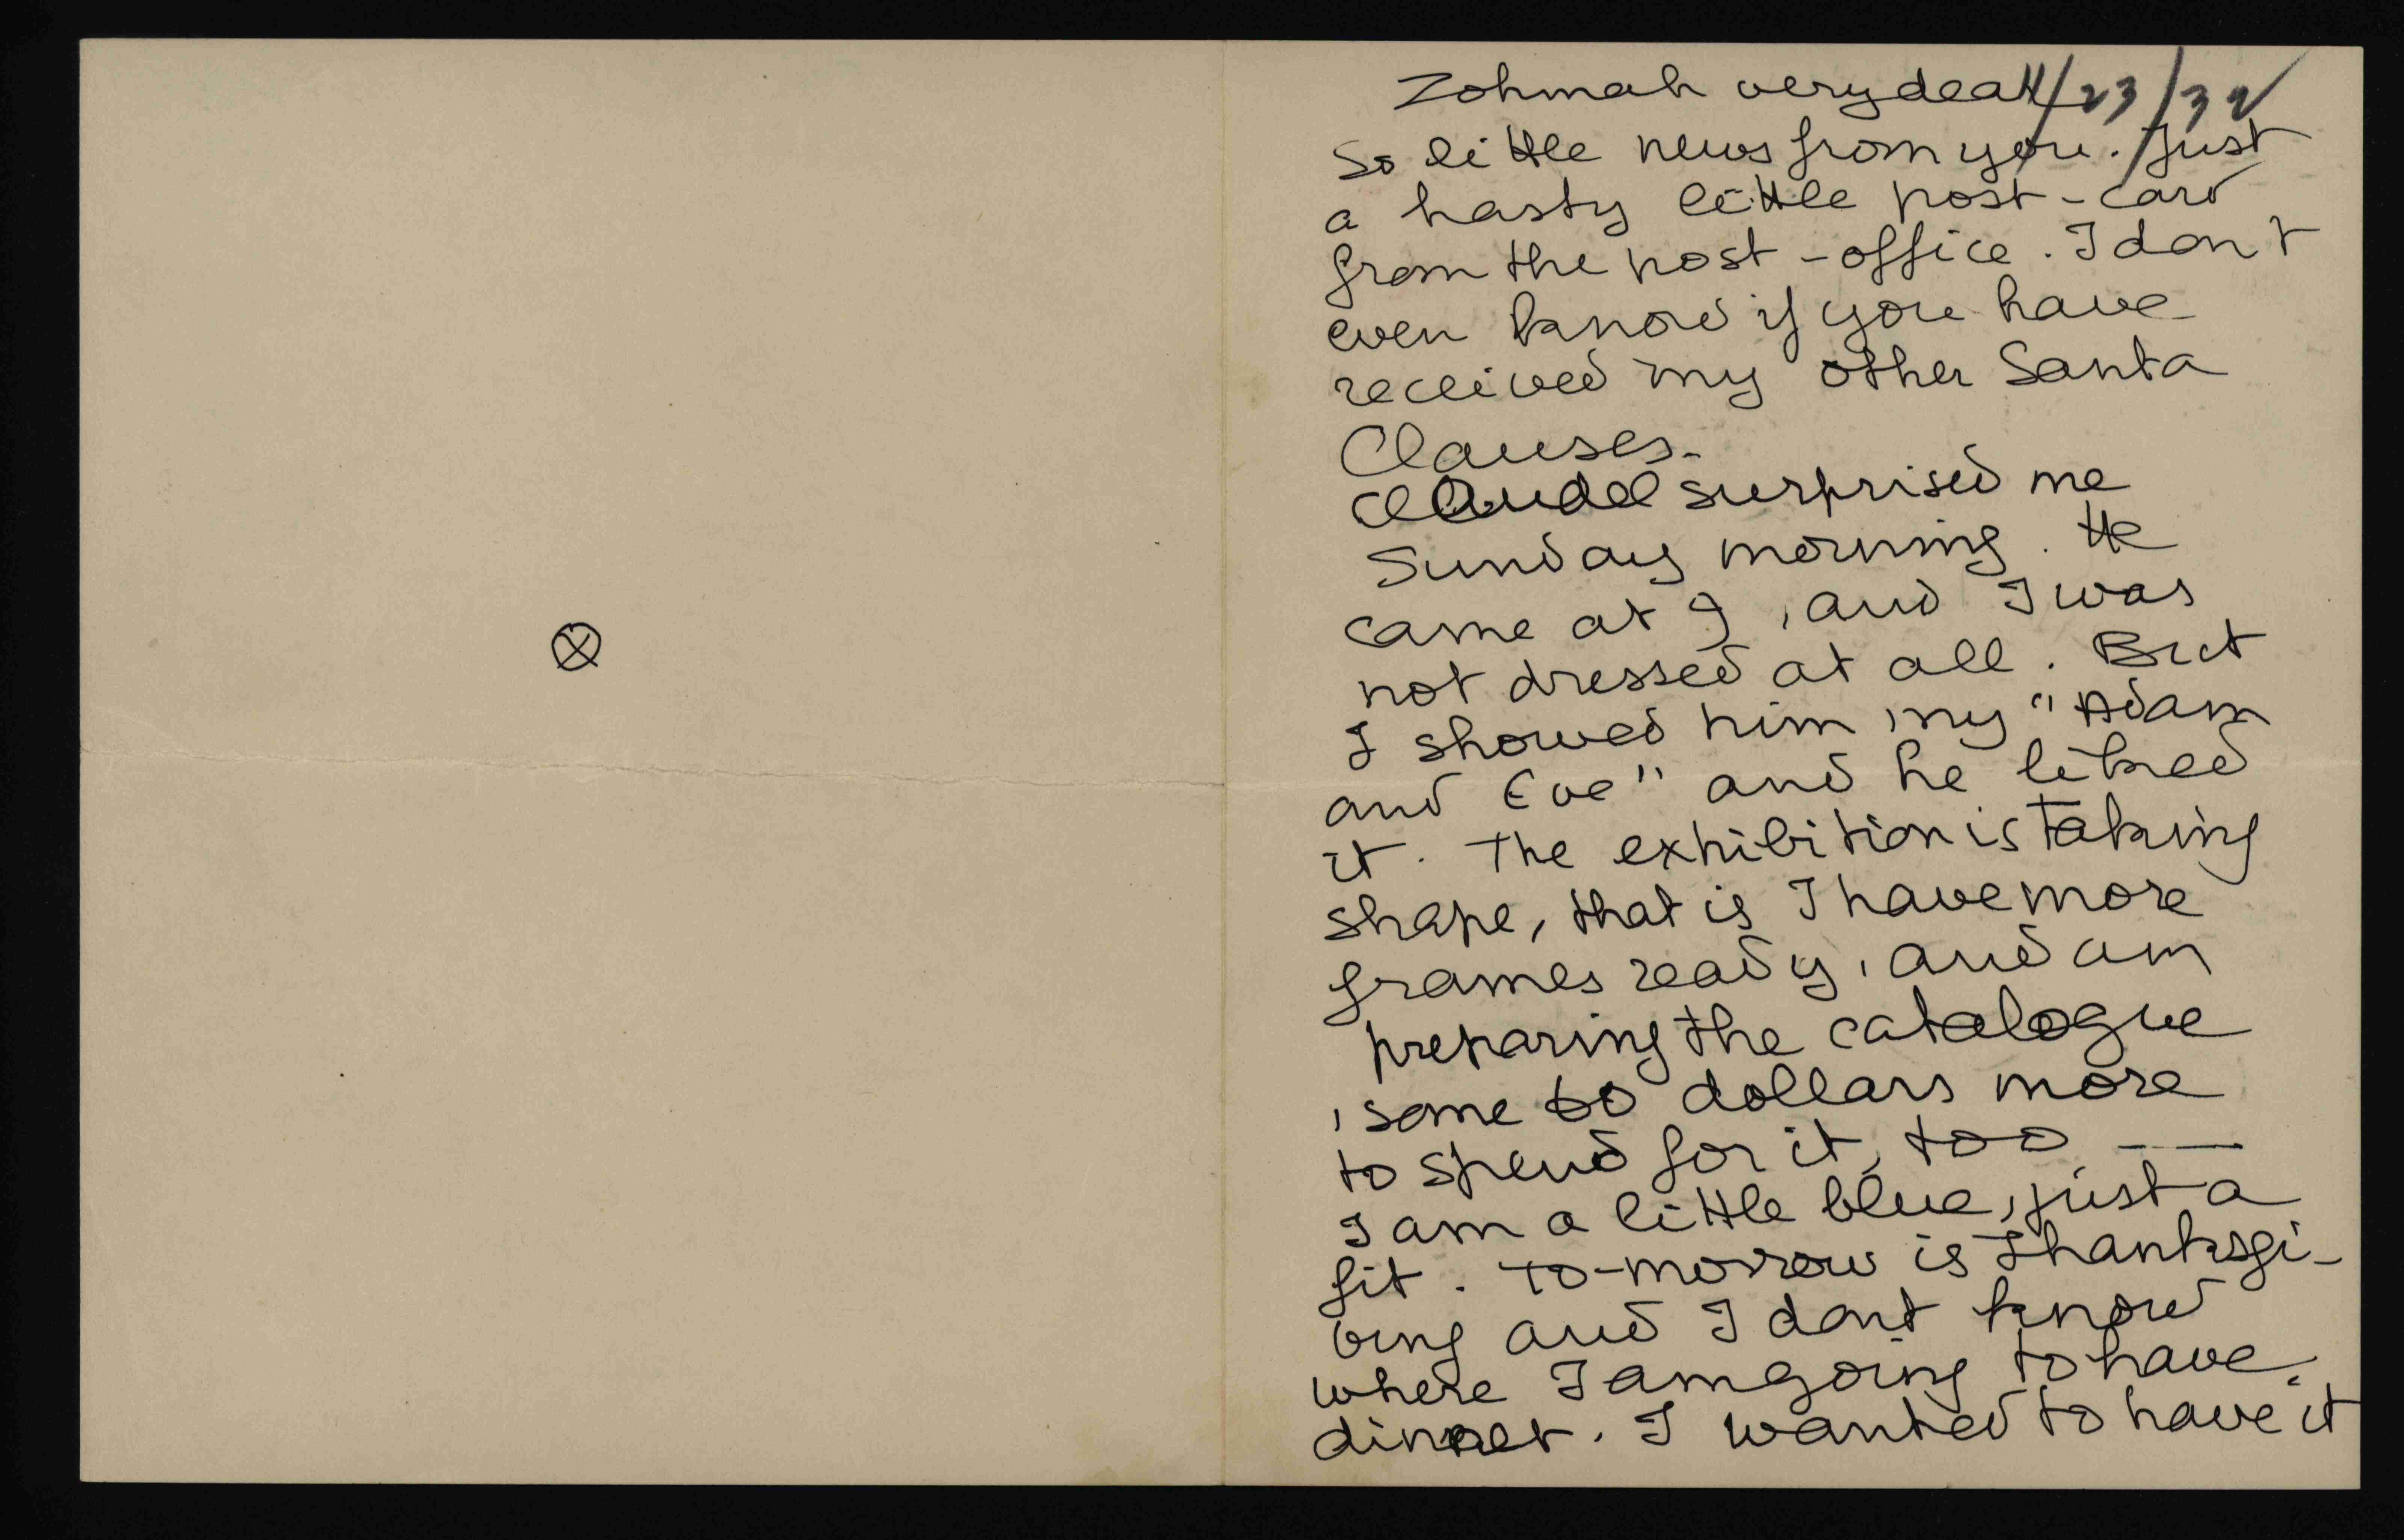 Zohmah very dear 11/23/32
So little news from you. Just
a hasty little post-card
from the post-office. I don't
even know if you have
received my other Santa
Clauses.
Claudel surprised me
Sunday morning. He
came at 9, and I was
not dressed at all. But
I showed him my "Adam
and Eve" and he liked
it. The exhibition is taking
shape, that is I have more
frames ready, and am
preparing the catalogue
, some 60 dollars more
to spend for it, too ——
I am a little blue, just a
fit. To-morrow is Thanksgi-
ving and I dont know
where I am going to have
dinner. I wanted to have it